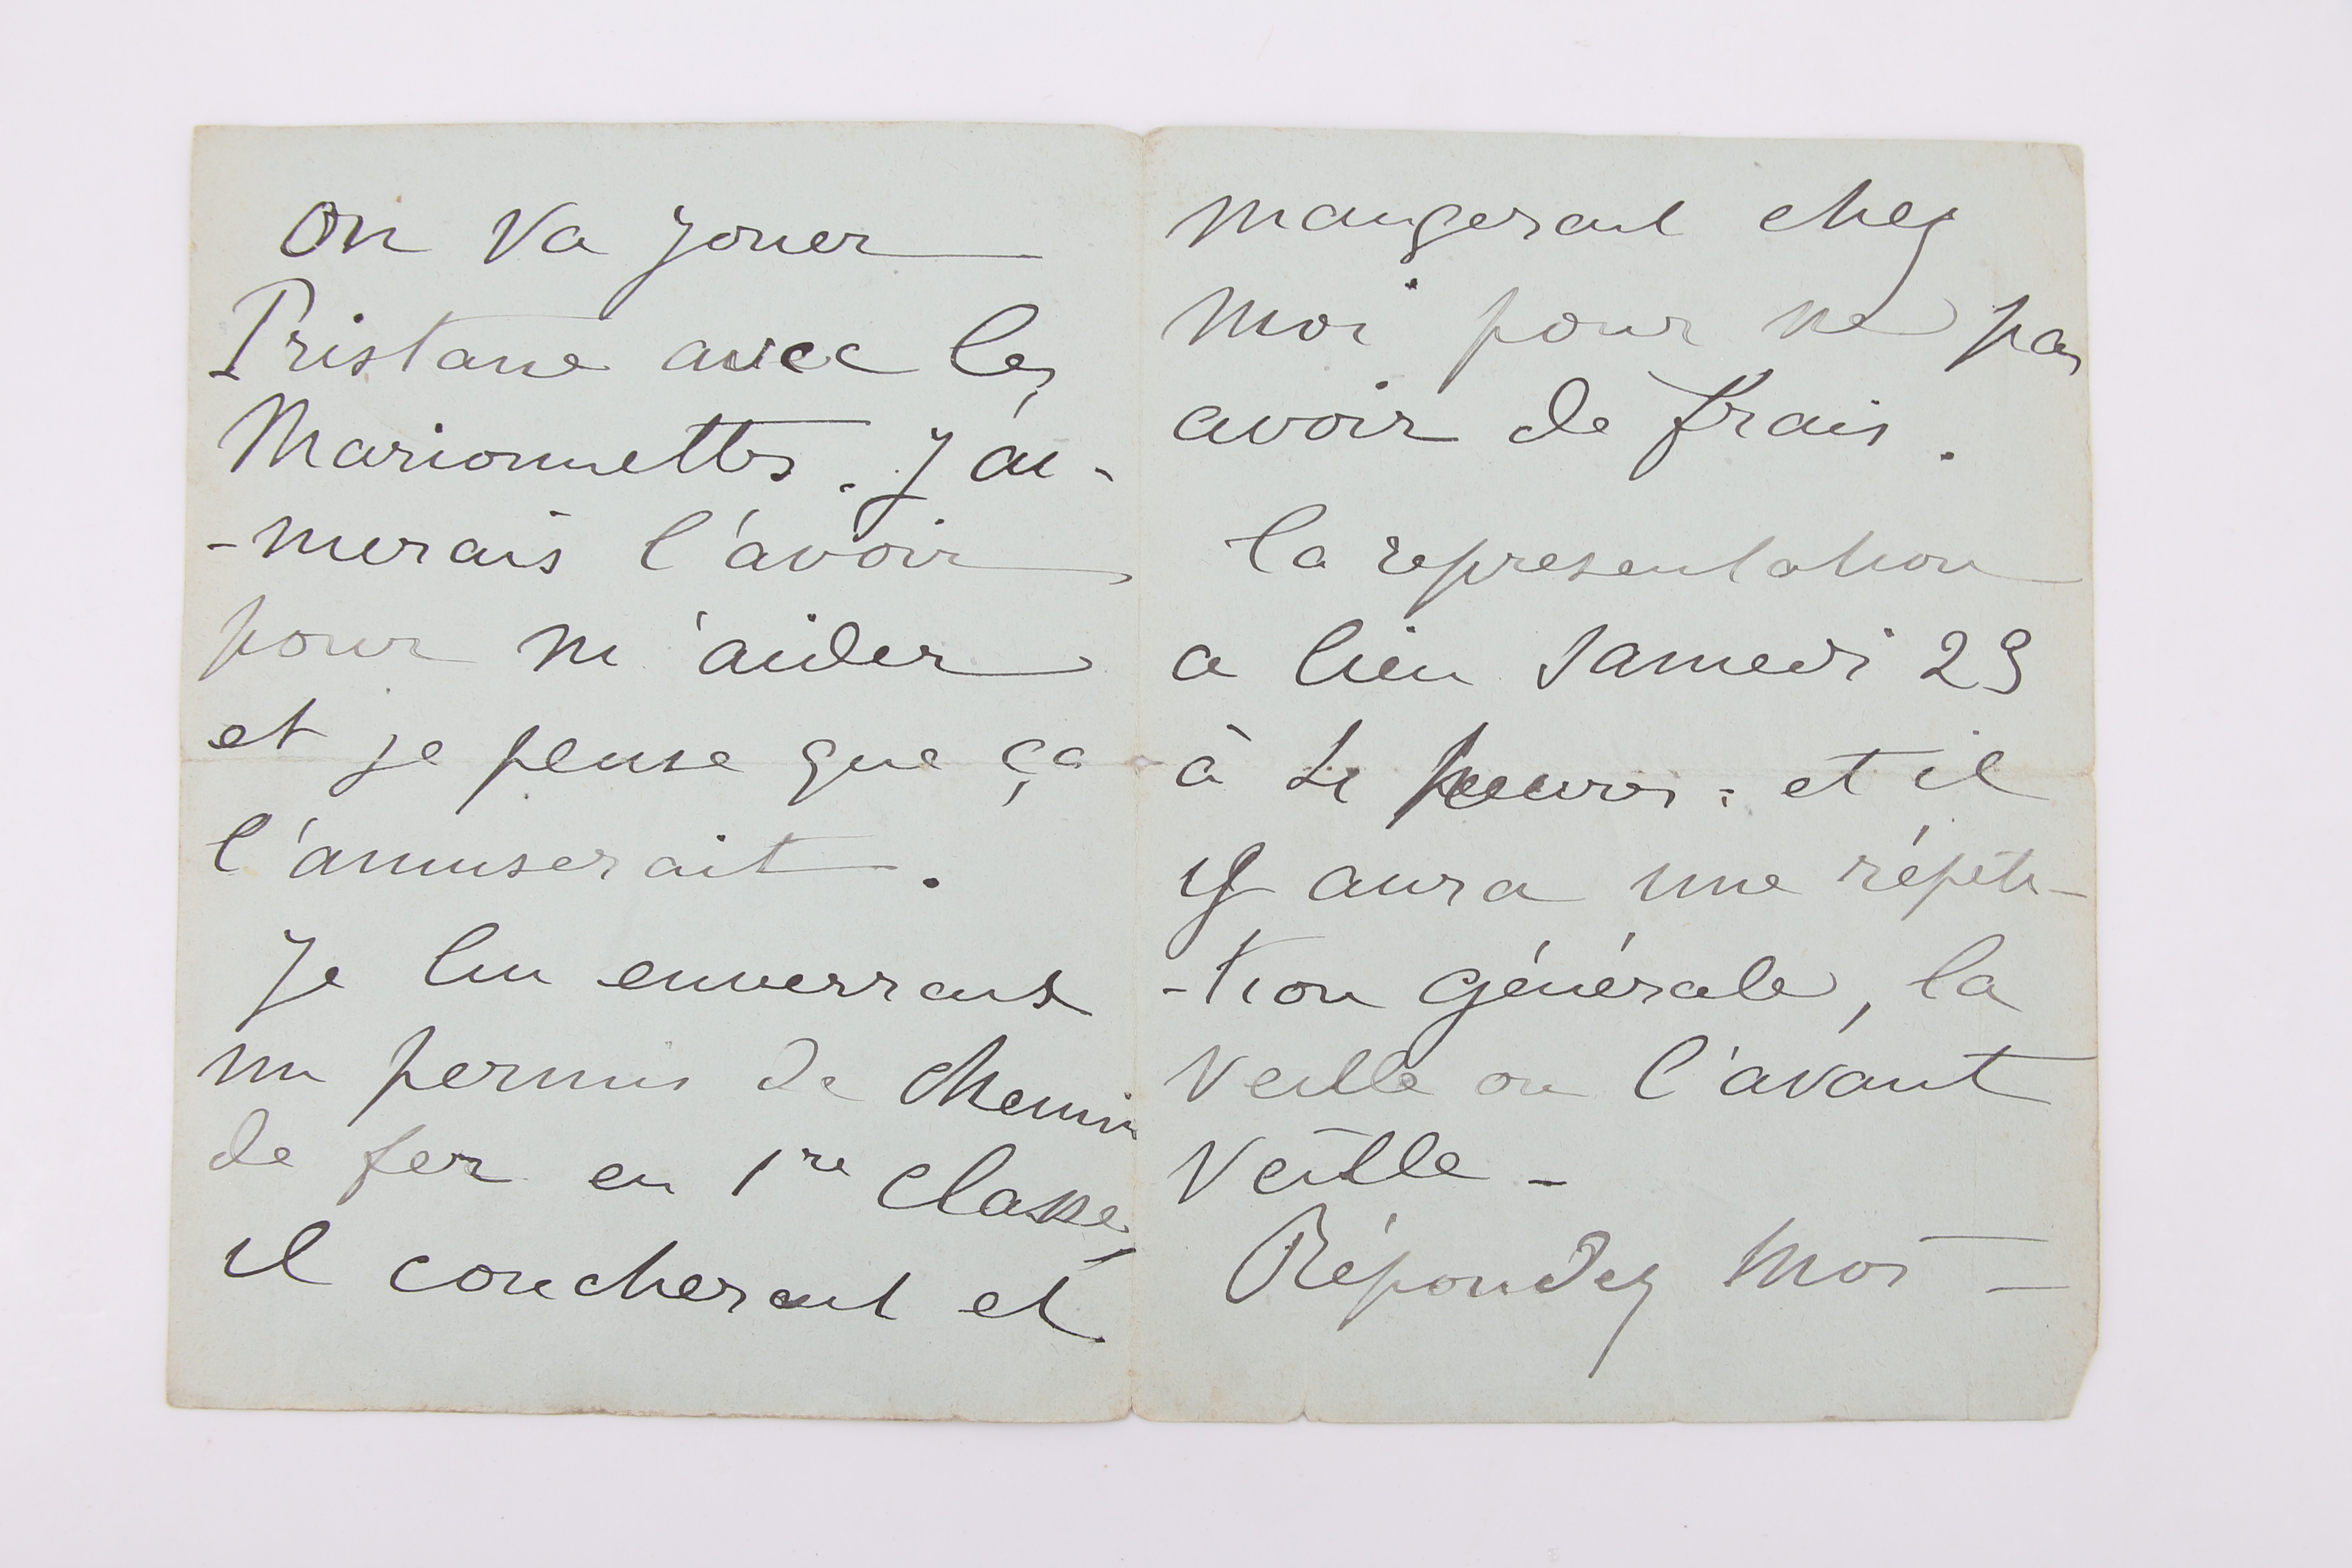 On va jouer
Pristane avec les
Marionnettes. J'ai-
-merais l'avoir
pour m'aider
et je pense que ça
l'amuserait.
Je lui enverrais
un permis de chemin
de fer en 1re classe,
il coucherait et
mangerait chez
moi pour ne pas
avoir de frais.
La representation
a lieu Samedi 29
à heures. et il
y aura une répéti-
-tion générale, la
veille ou l'avant
veille -
Répondez moi -